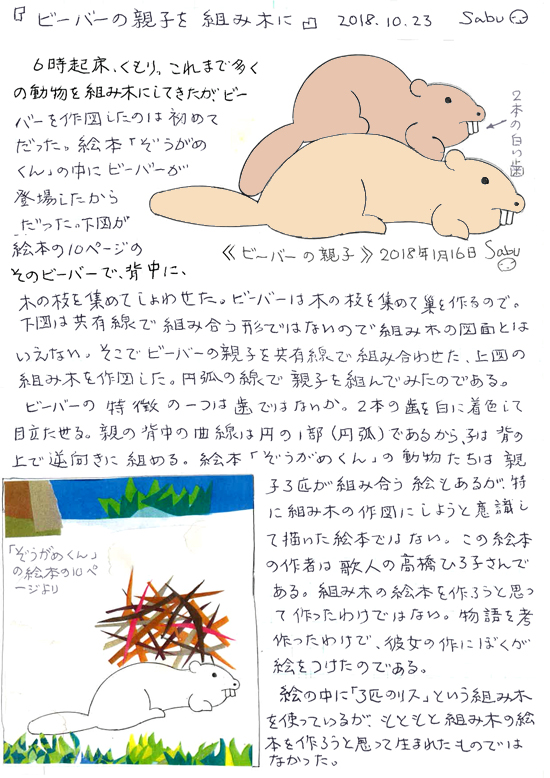 『ビーバーの親子を組み木に』 2018.10.23 Sabu
6時起床、くもり。これまで多く
の動物を組み木にしてきたが、ビー
バーを作図したのは初めて
だった。絵本「ぞうがめ
くん」の中にビーバーが
登場したから
だった。下図が
絵本の10ページの
そのビーバーで、背中に、
2本の白い歯
《ビーバーの親子》2018年1月16日 Sabu
木の枝を集めてしょわせた。ビーバーは木の枝を集めて巣を作るので。
下図は共有線で組み合う形ではないので組み木の図面とは
いえない。そこでビーバーの親子を共有線で組み合わせた、上図の
組み木を作図した。円弧の線で親子を組んでみたのである。
ビーバーの特徴の一つは歯ではないか。2本の歯を白に着色して
目立たせる。親の背中の曲線は円の1部(円弧)であるから、子は背の
上で逆向きに組める。絵本「ぞうがめくん」の動物たちは親
子3匹が組み合う絵もあるが、特
に組み木の作図にしようと意識し
て描いた絵本ではない。この絵本
の作者は歌人の高橋ひろ子さんで
ある。組み木の絵本を作ろうと思っ
て作ったわけではない。物語を考
作ったわけで、彼女の作にぼくが
絵をつけたのである。
絵の中に「3匹のリス」という組み木
を使っているが、もともと組み木の絵
本を作ろうと思って生まれたものでは
なかった。
「ぞうがめくん」
の絵本の10ペ
ージより